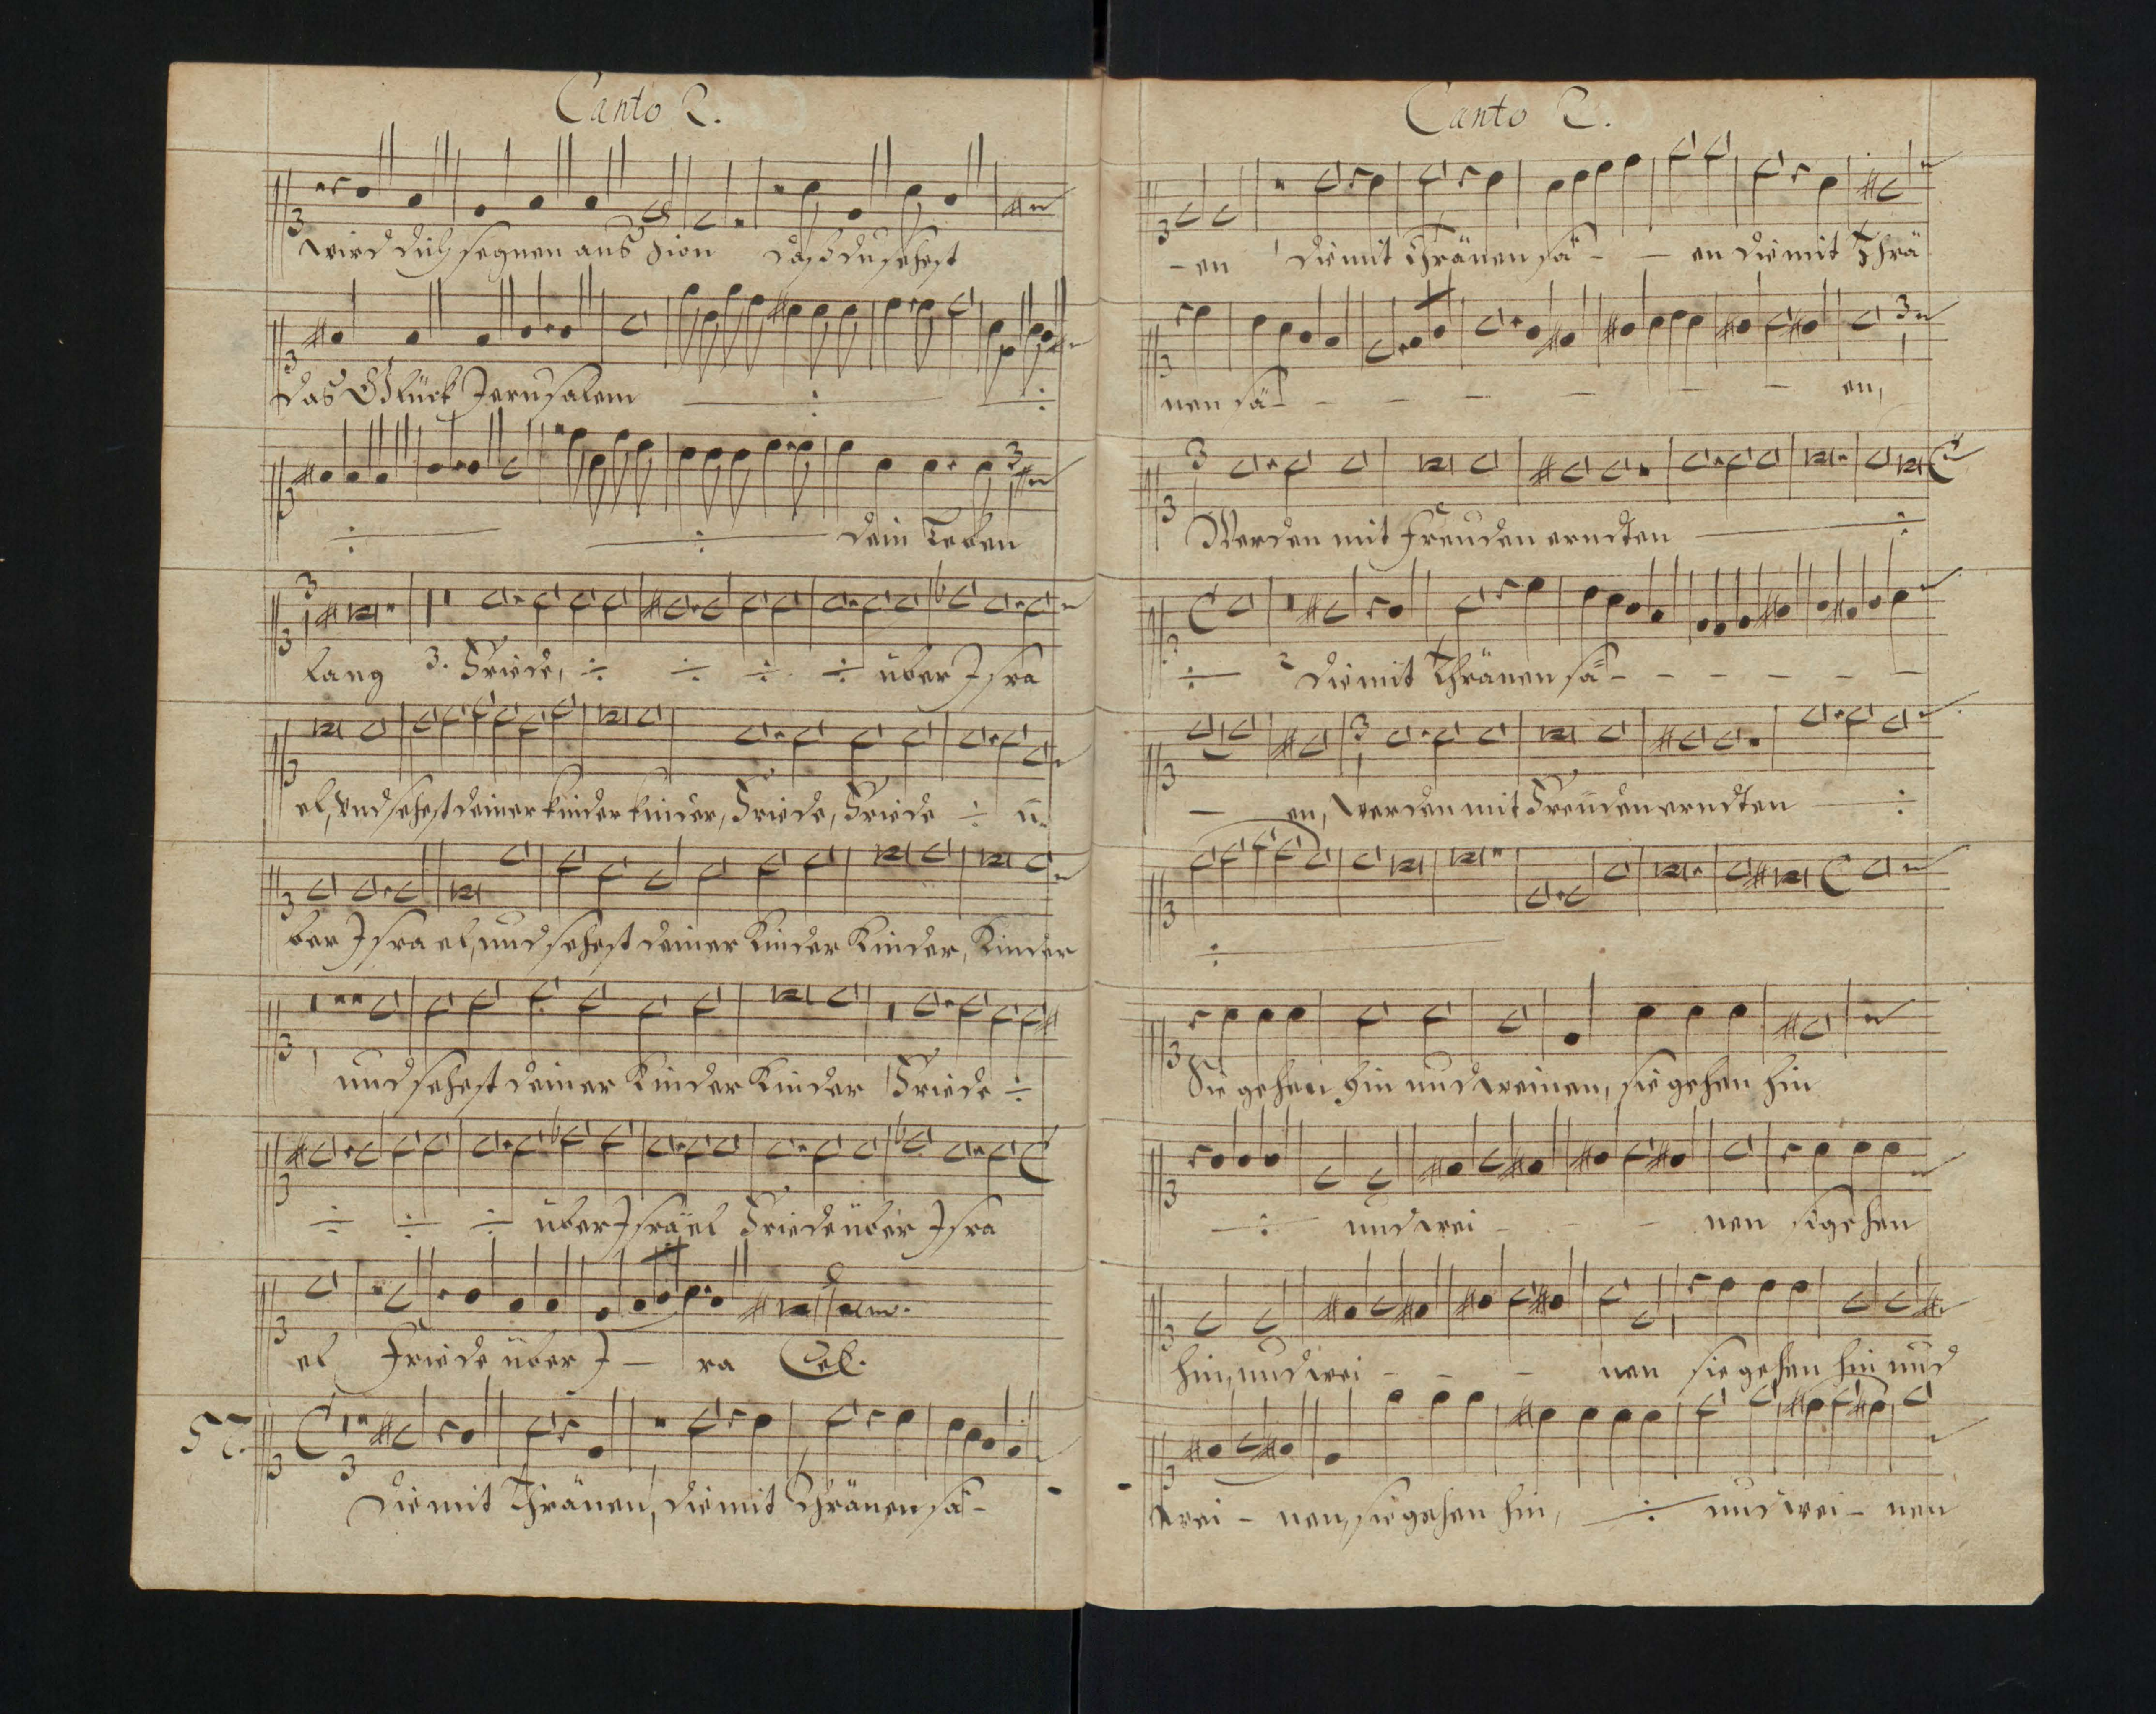 Canto 2.
wird dich segnen aus Zion daß du sehest
das Glück Jerusalem ÷ ÷
÷ ÷ dein Leben
lang 3. Friede, ÷ ÷ ÷ ÷ über Isra
el, und sehest deiner kinder kinder, Friede, Friede ÷ ü-
ber Israel, und sehest deiner Kinder Kinder, Kinder
und sehest deiner Kinder Kinder Friede ÷
÷ ÷ ÷ über Israel Friede über Isra
el Friede über I - ra el.
57.
Die mit Thränen, die mit Thränen sä -
Canto 2.
- en die mit Thränen sä - - en die mit Thrä
nen sä - - - - - - en,
Werden mit Freuden erndten ÷
÷ die mit Thränen sä - - - - - -
- en, werden mit Freuden erndten ÷
÷
Sie gehen hin und weinen, sie gehen hin
÷ und wei - - - nen sie gehen
hin, und wei - - - nen sie gehen hin und
wei - nen, sie gehen hin, ÷ und wei - nen